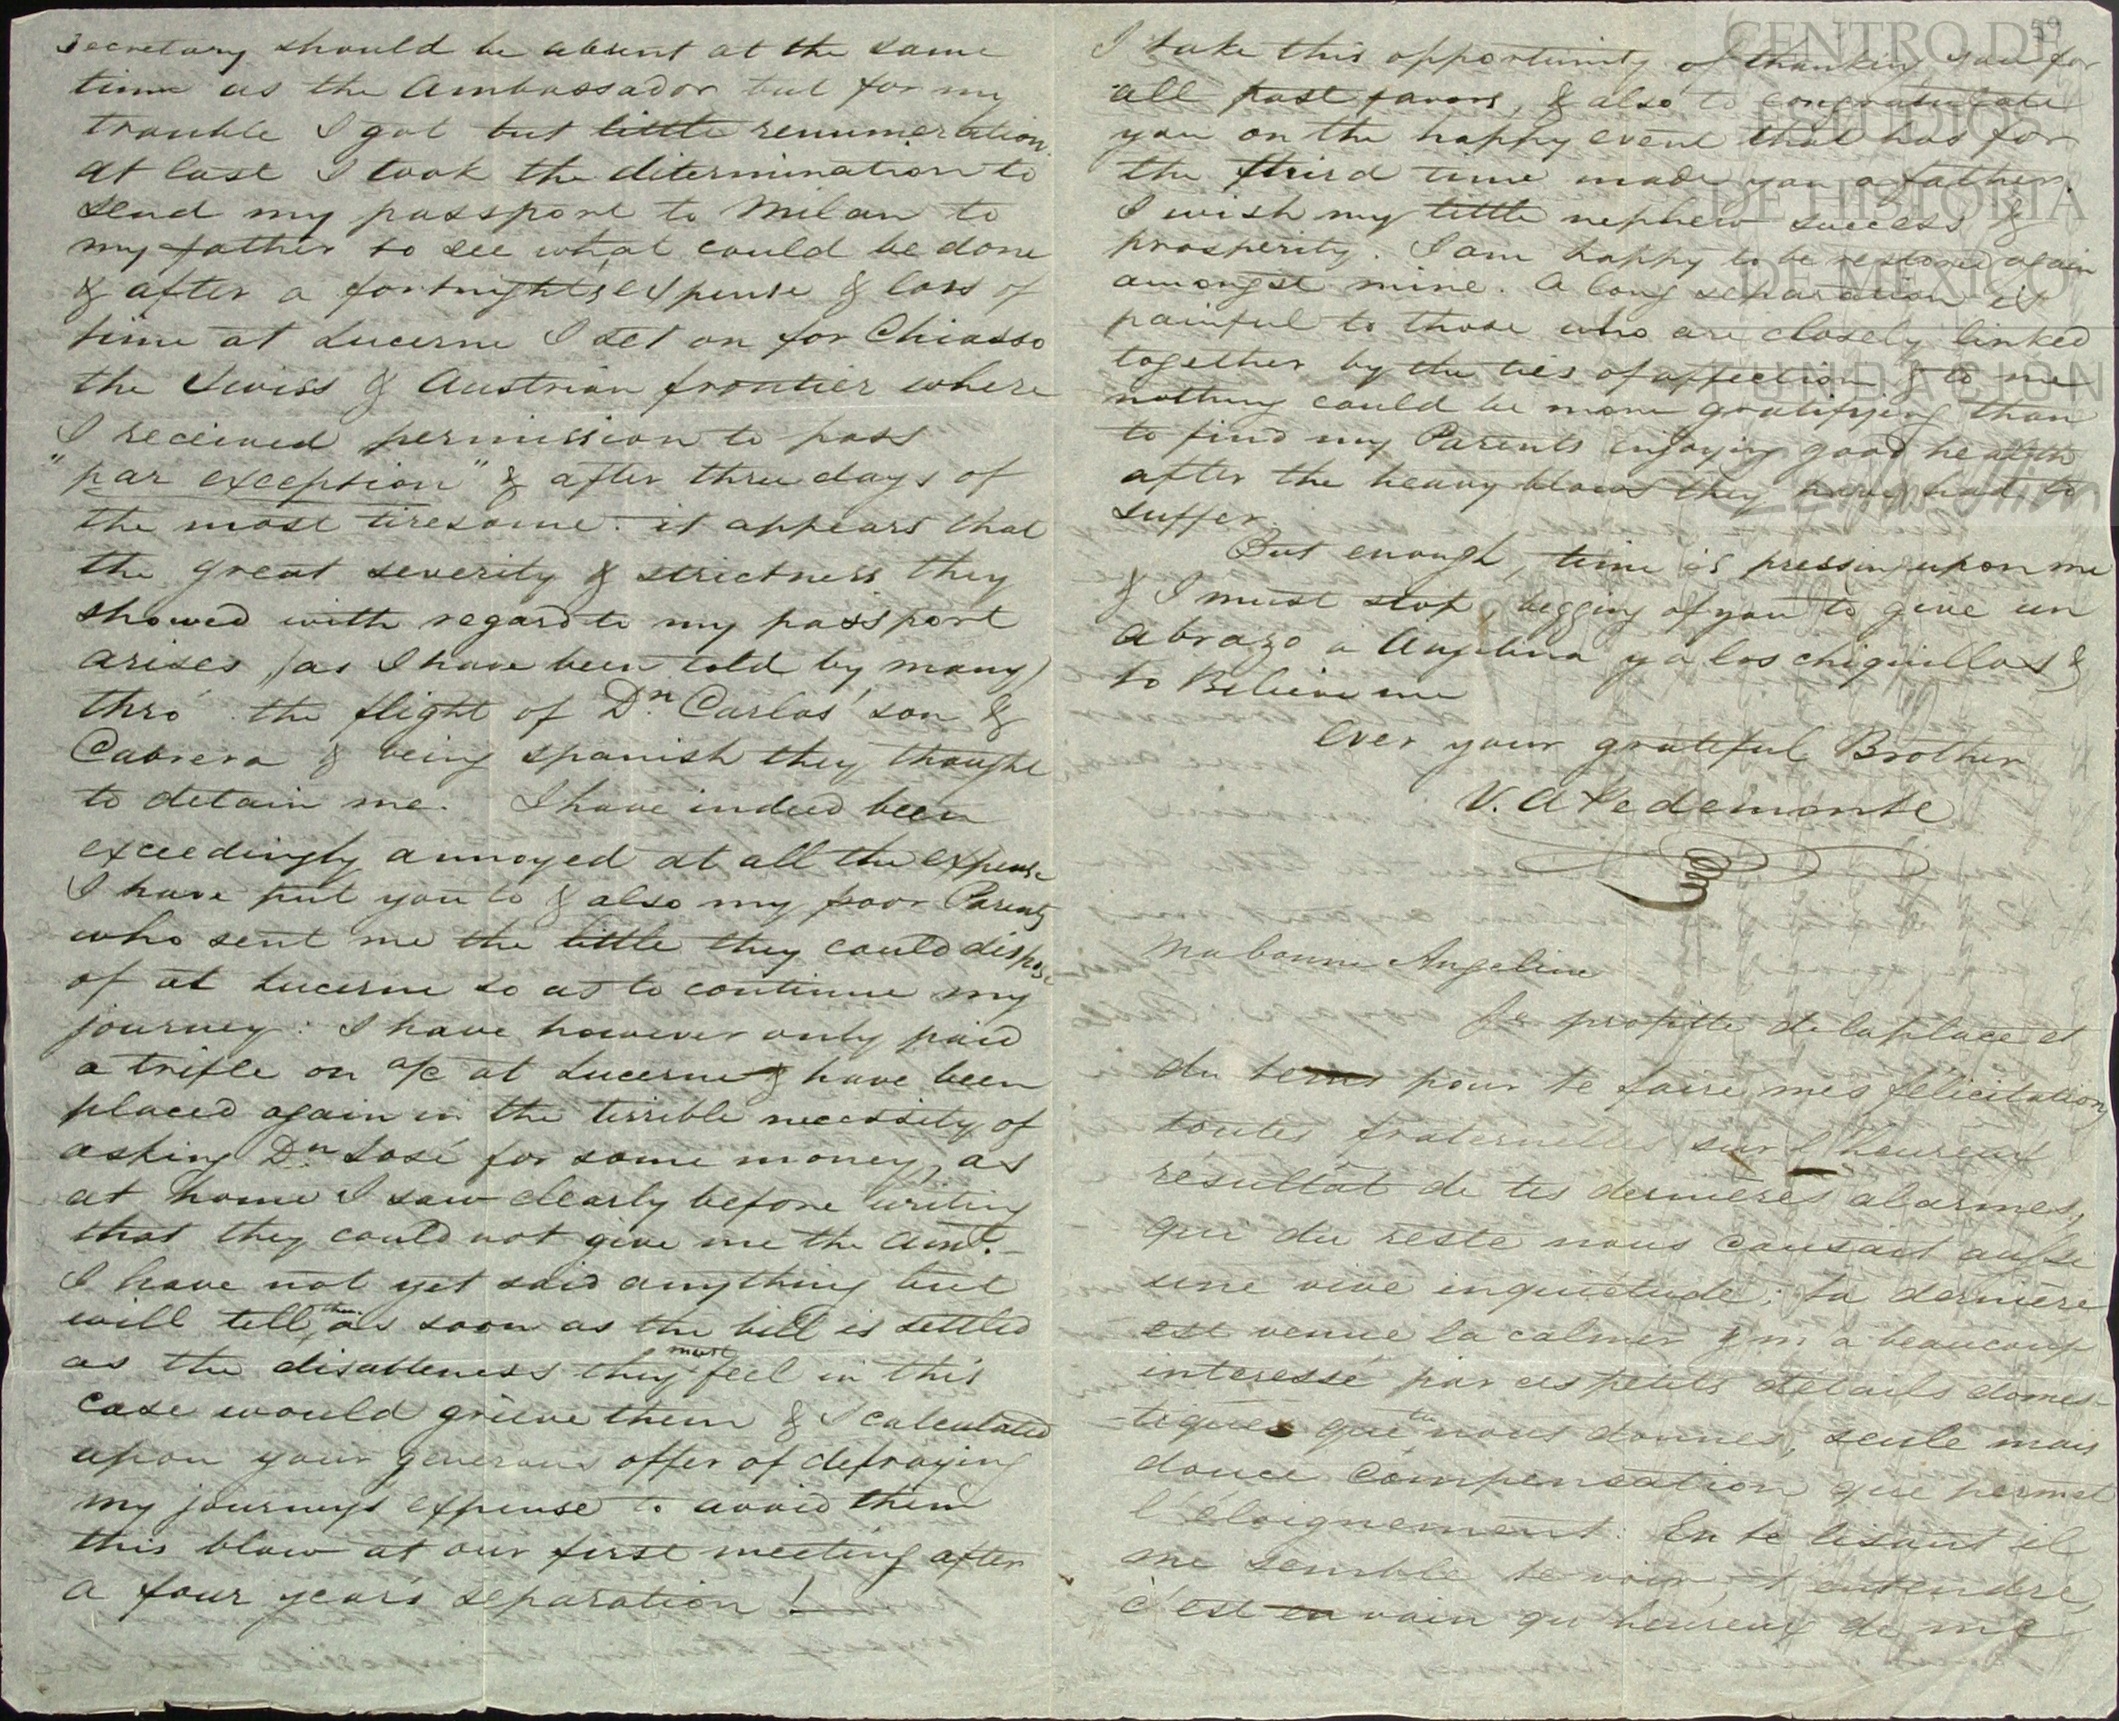 secretary should be absent at the same
time as the Ambassador but for my
trouble I got but little renumeration.
At last I took the ditermination to
send my passport to Milan to
my father to see what could be done
& after a fortnights expense & loss of
time at Lucerne I set on for Chiasso
the Swiss & Austrian frontier where
I received permission to pass
"par exception" & after three days of
the most tiresome. it appears that
the great severity & strictness they
showed with regard to my passport
arises, (as I have been told by many)
thro' the flight of Dn. Carlos' son &
Cabrera & being spanish they thought
to detain me. I have indeed been
exceedingly annoyed at all the expense
I have put you to & also my poor Parents
who sent me the little they could dispose
of at Lucerne so as to continue my
journey: I have however only paid
a trifle on a/c at Lucerne & have been
placed again in the terrible necessity of
asking Dn José for some money, as
at home I saw clearly before writing
that they could not give me the amt.
I have not yet said anything but
will tell them as soon as the bill is settled
as the disableness they must feel in this
case would grieve them & I calculated
upon your generous offer of defraying
my journeys expense to avoid them
this blow at our first meeting after
a four years separation !
59
I take this opportunity of thanking you for
all past favors, & also to congratulate
you on the happy event that has for
the third time made you a father.
I wish my little nephew success &
prosperity. I am happy to be restored again
amongst mine. A long separation is
painful to those who are closely linked
together by the ties of affection & to me
nothing could be more gratifying than
to find my Parents enjoying good health
after the heavy blows they have had to
suffer.
But enough, time is pressing upon me
& I must stop, begging of you to give un
abrazo a Angelina y a los chiquillos &
to Believe me
Ever your grateful Brother
V. A Pedemonte
Ma bonne Angeline
Je profitte de la place et
du tems pour te faire mes félicitations
toutes fraternelles sur l'heureux
résultat de tes dernières alarmes,
qui du reste nous causait aussi
une vive inquiétude; ta dernière
est venue la calmer & m'a beaucoup
interessé par ces petits détails domes-
tiques que tu nous donnes, seule mais
douce compensation que permet
l'éloignement. En te lisant il
me semble te voir, t'entendre,
c'est en vain qu'heureux de me
CENTRO DE
ESTUDIOS
DE HISTORIA
DE MEXICO
FUNDACION
Carlos Slim